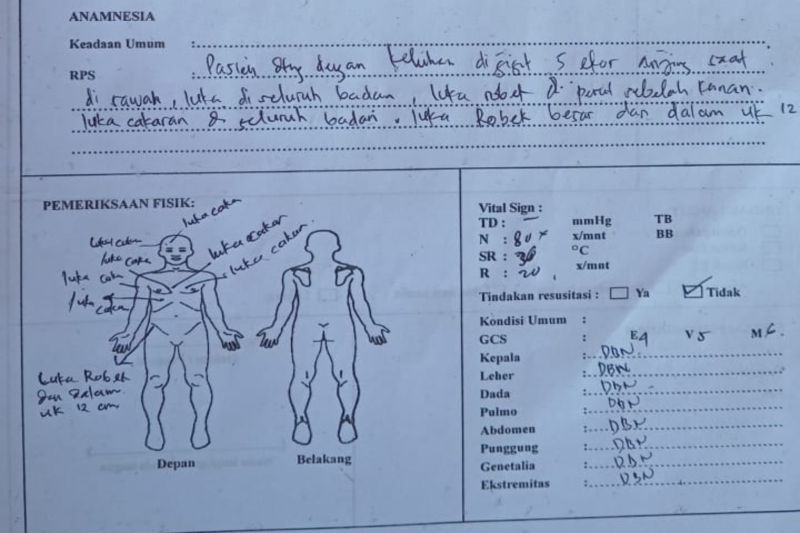 ANAMNESIA
Keadaan Umum :
RPS : Pasien dtg dengan keluhan digigit 5 ekor anjing saat
di sawah, luka di seluruh badan, luka robek di perut sebelah kanan.
luka cakaran di seluruh badan. luka Robek besar dan dalam uk 12
PEMERIKSAAN FISIK:
luka cakar
luka cakar
luka cakar
luka cakar
luka cakar
luka cakar
luka cakar
Luka Robek
dan dalam
uk 12 cm
Depan
Belakang
Vital Sign :
TD : – mmHg TB
N : 80 x x/mnt BB
SR : 36 °C
R : 20 x/mnt
Tindakan resusitasi : Ya Tidak
Kondisi Umum :
GCS : E4 V5 M6.
Kepala : DBN
Leher : DBN
Dada : DBN
Pulmo : DBN
Abdomen : DBN
Punggung : DBN
Genetalia : DBN
Ekstremitas : DBN